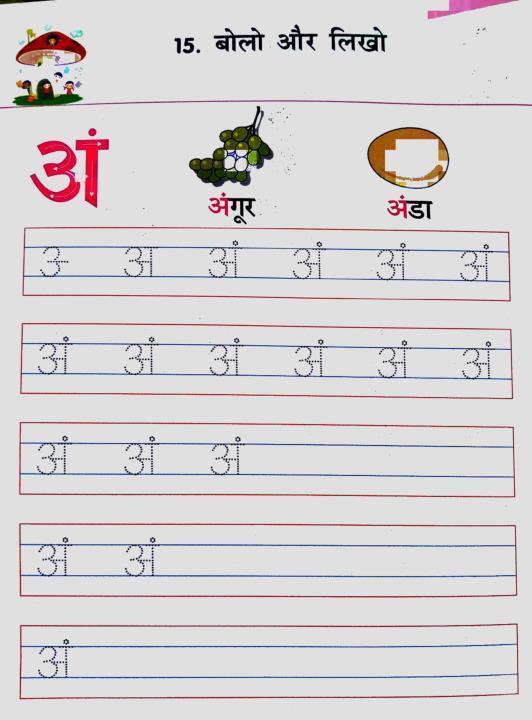 15. बोलो और लिखो
अं
अंगूर अंडा
उ अ अं अं अं अं
अं अं अं अं अं अं
अं अं अं
अं अं
अं